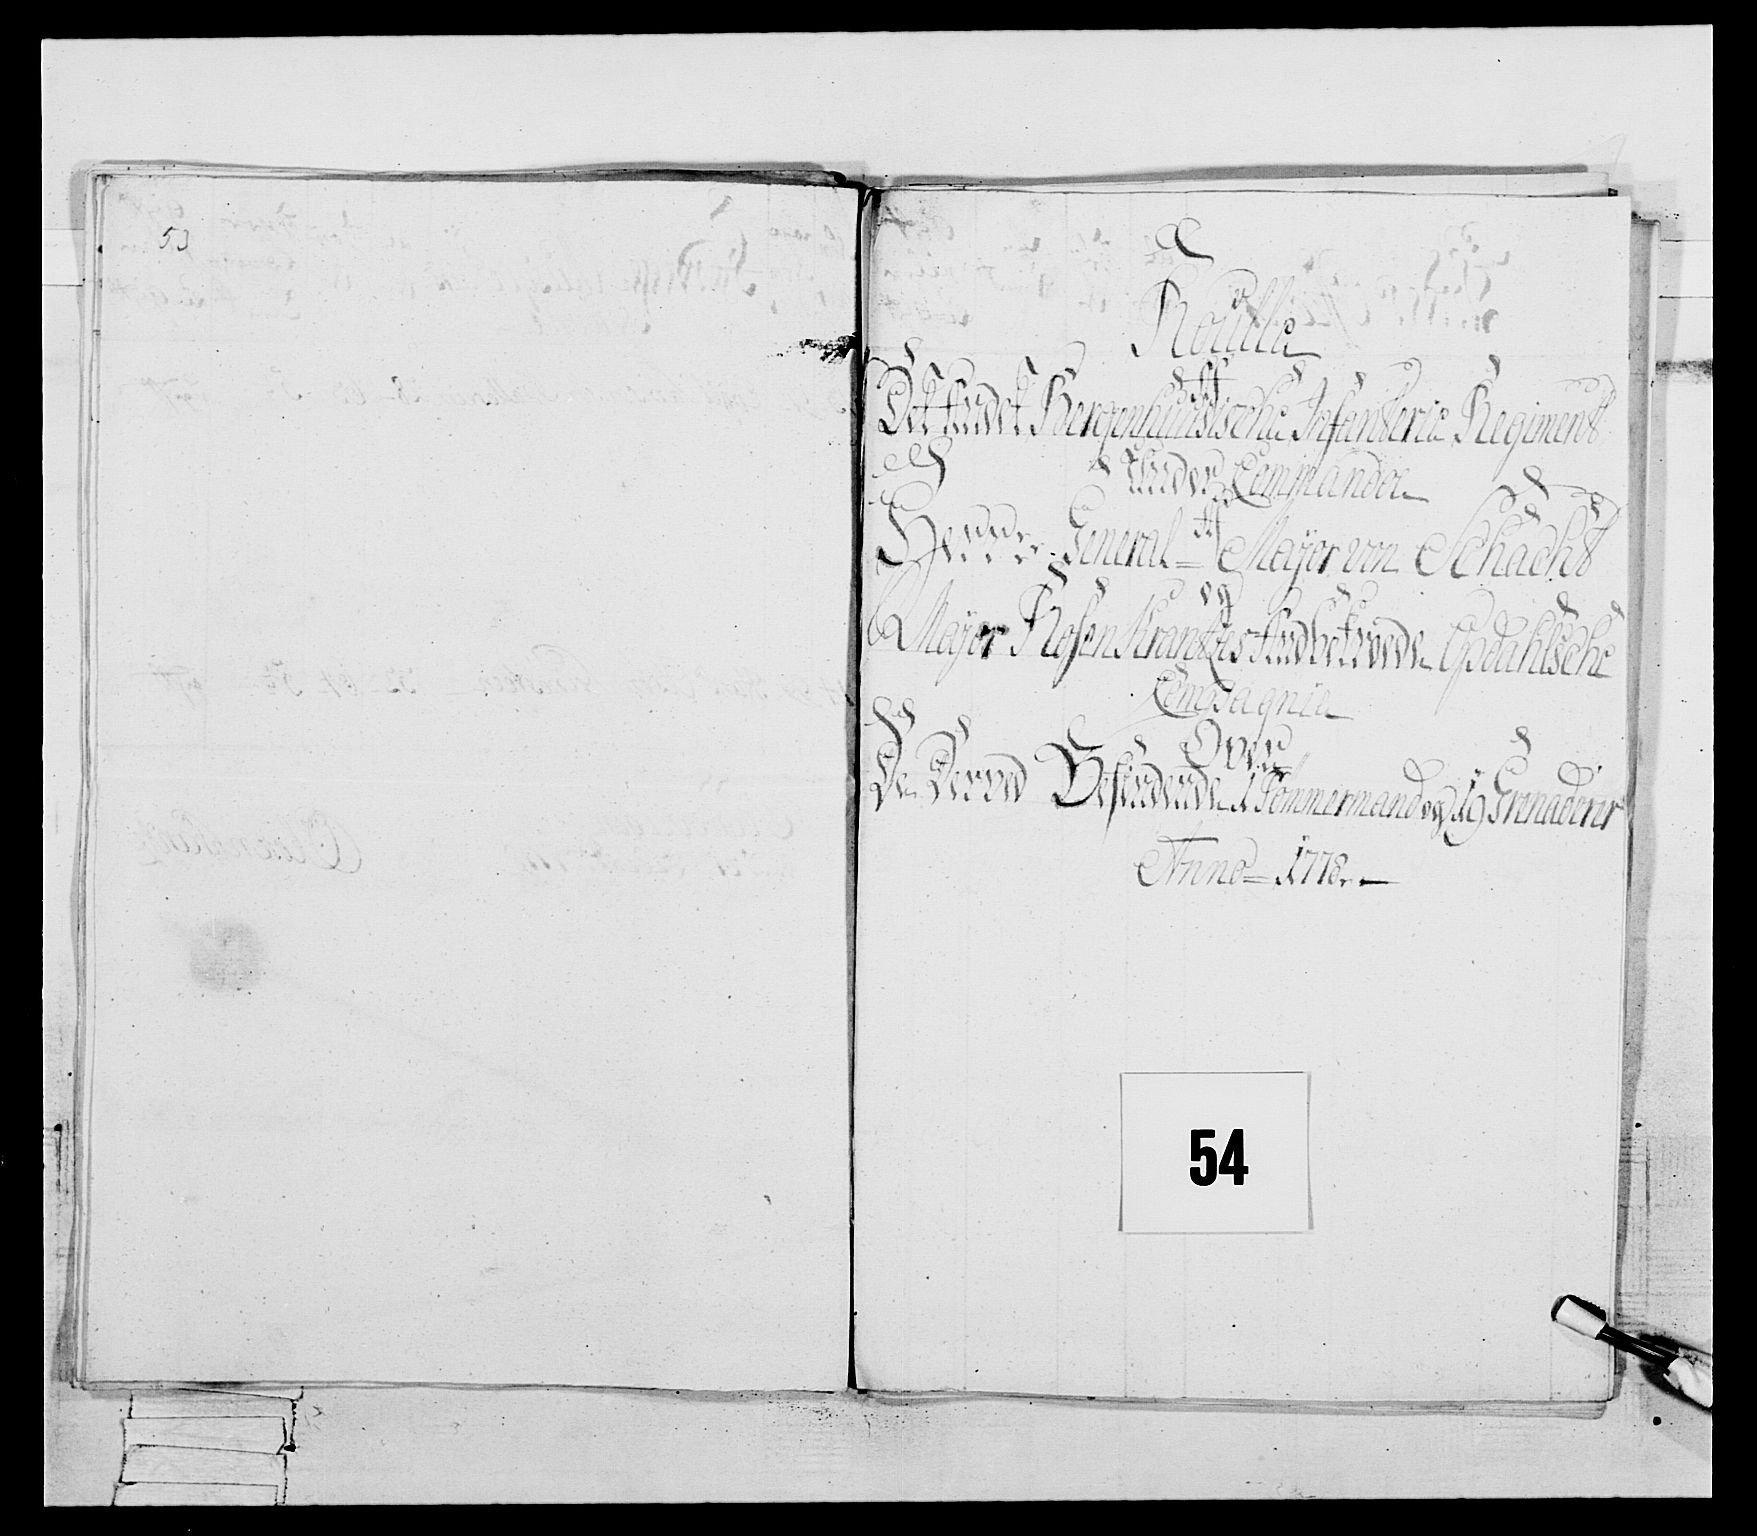 53
Roulle
Det Andet Bergenhuusische Infanterie Regiment
Under Commando
Herr General Mayor von Schacht
og
Mayor Rosenkrantzes Andbetroede Opdahlsche
Compagnie
Over
De Derved Befindende 1 Tømmermand og 19 Grenaderer
Anno 1778.
54